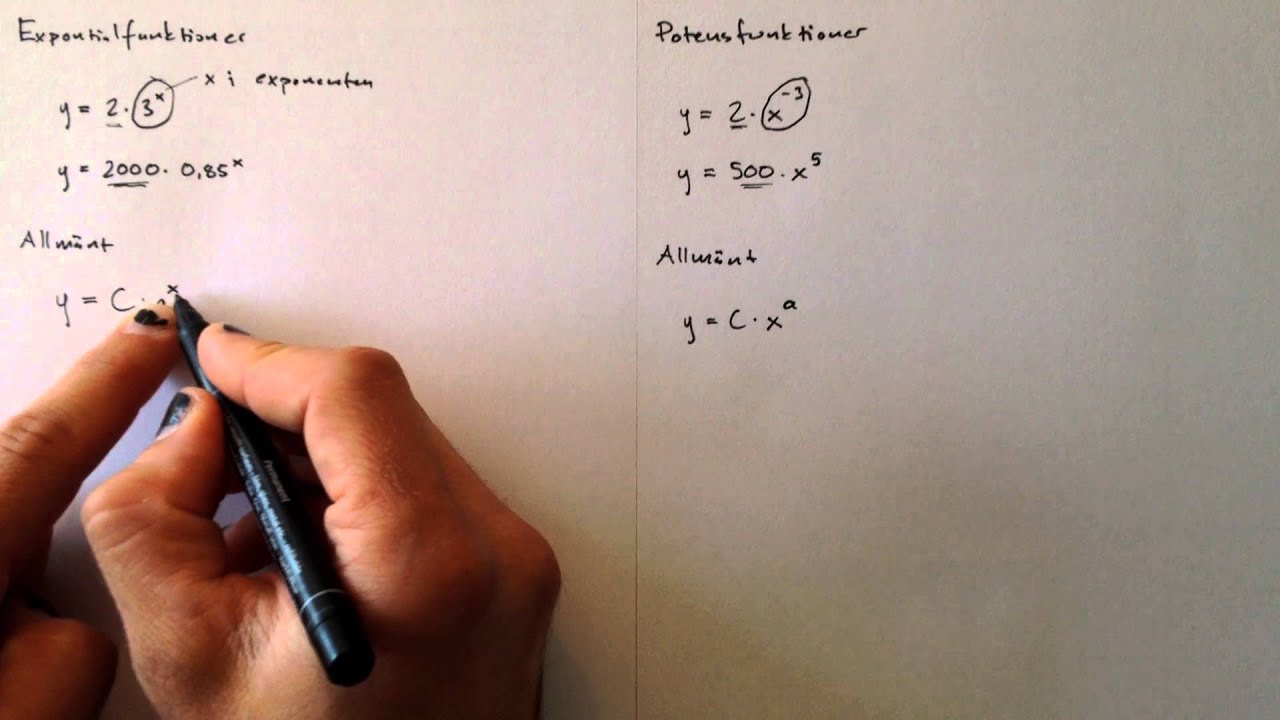 Expontialfunktioner
x i exponenten
y = 2 · 3^x
y = 2000 · 0,85^x
Allmänt
y = C · a^x
Potensfunktioner
y = 2 · x^-3
y = 500 · x^5
Allmänt
y = C · x^a
Permanent